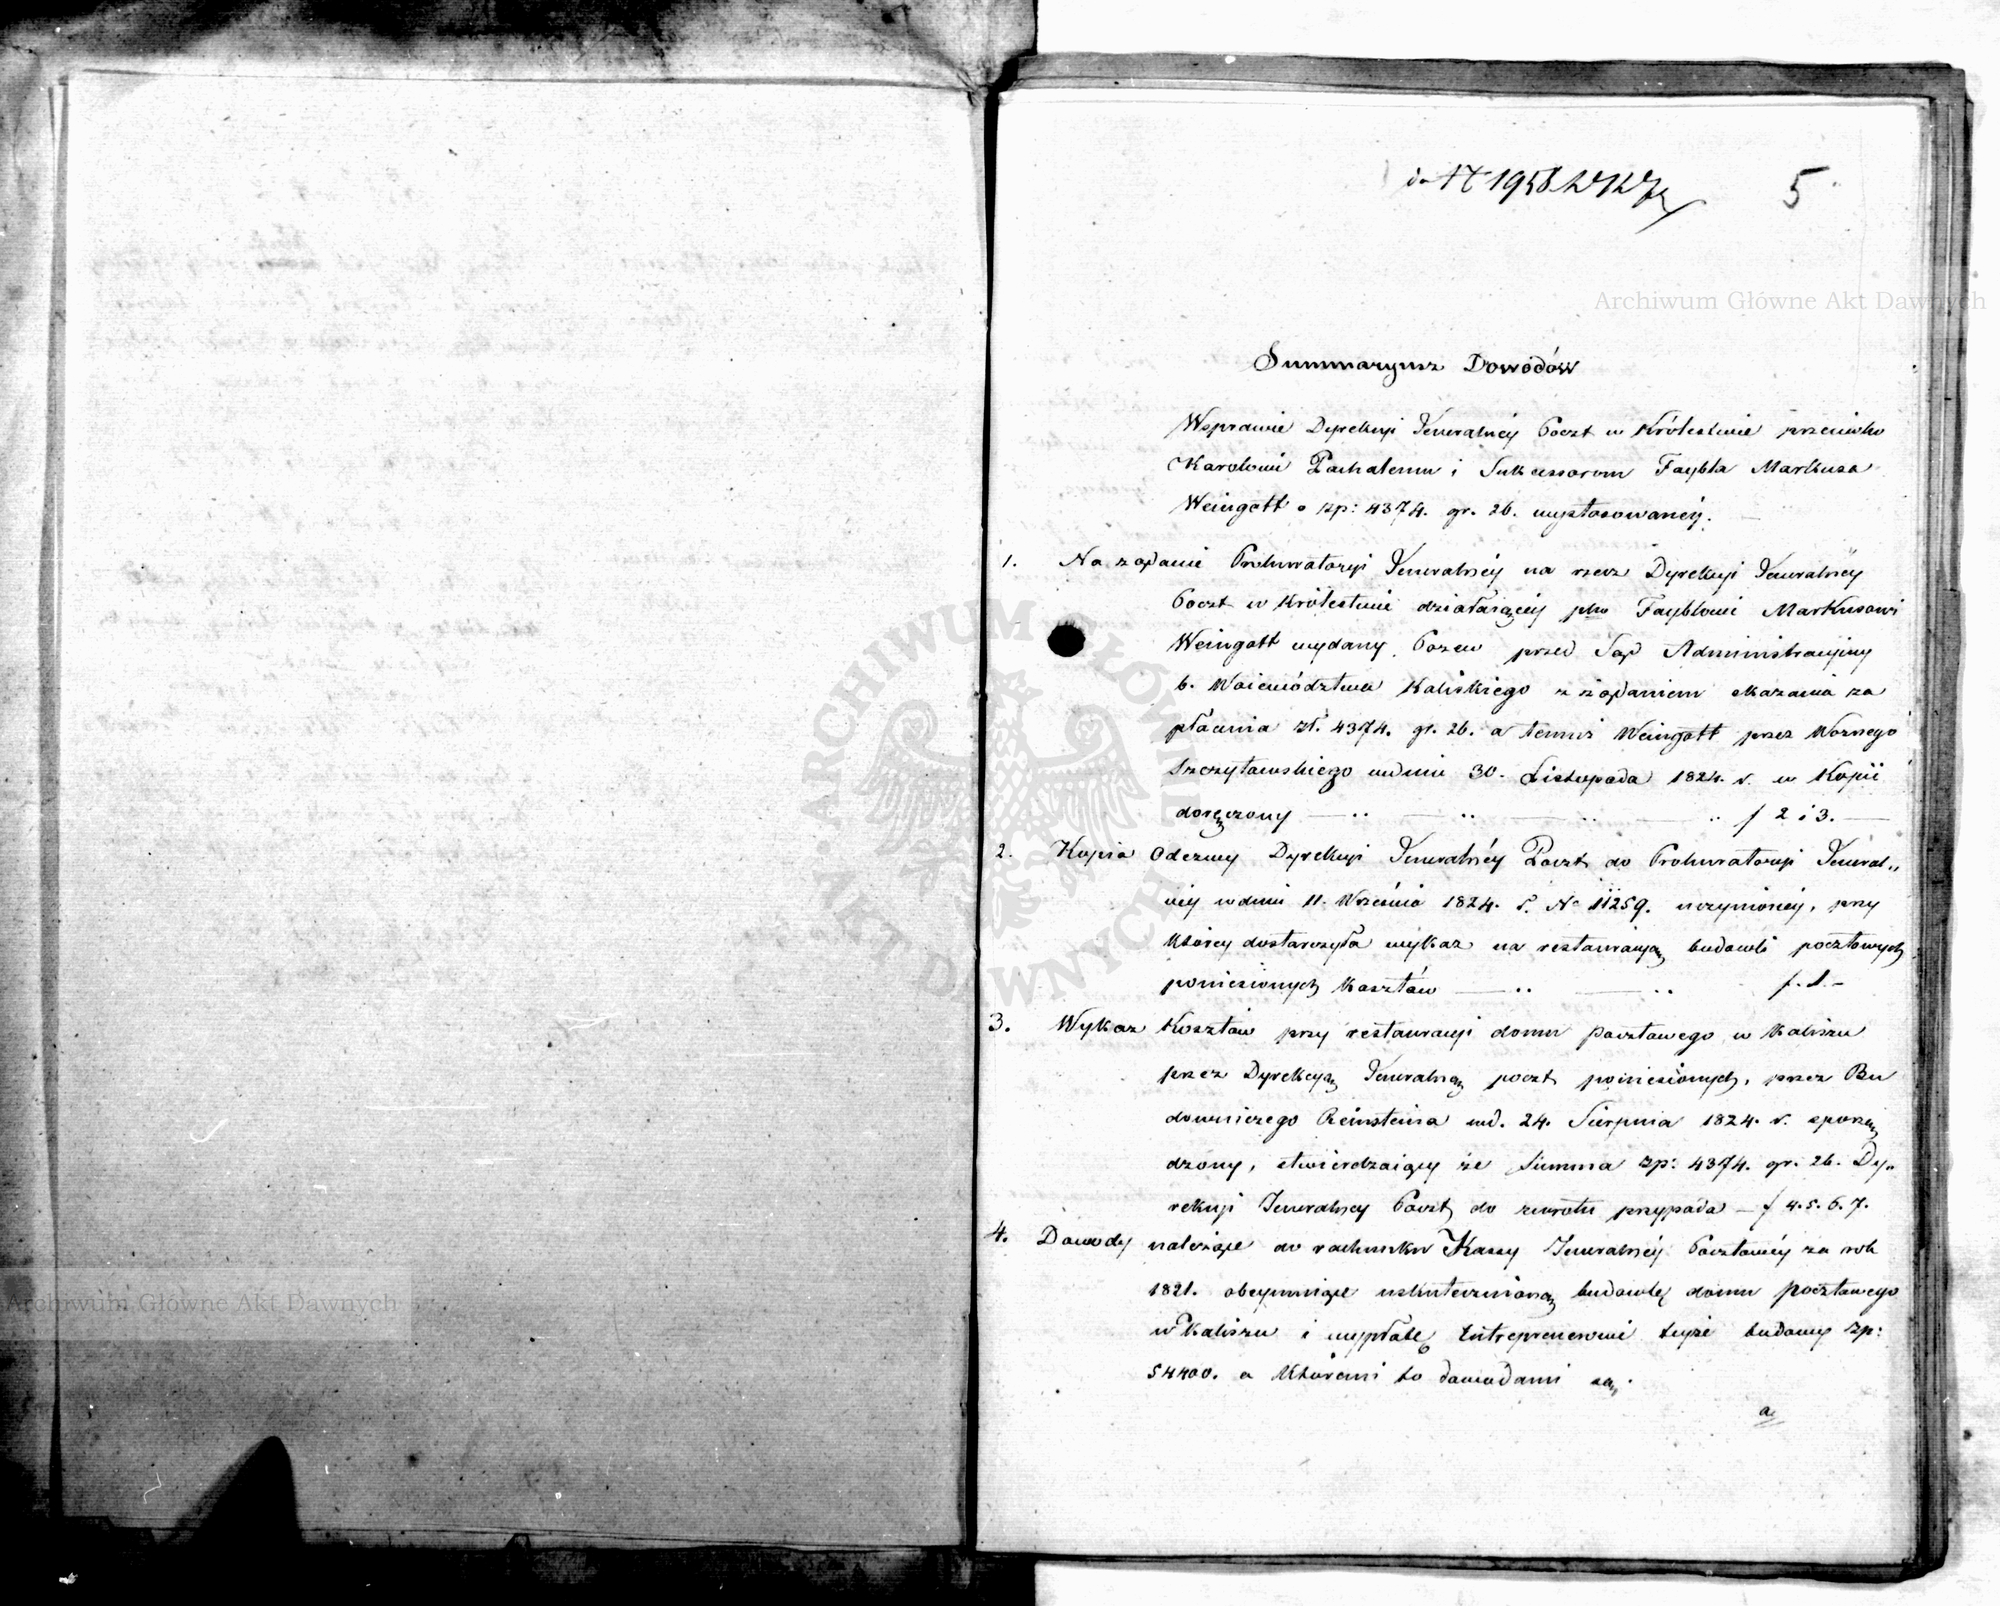 5
Archiwum Główne Akt Dawnych
Summaryusz Dowodów
Wsprawie Dyrekcyi Jeneralnéy Poczt w Królestwie przeciwko
Karolowi Pachalemu i Sukcessorom Faybla Markusa
Weingott o zp: 4374. gr. 26. wystosowanéy.
1. Na żądanie Prokuratoryi Jeneralnéy na rzecz Dyrekcyi Jeneralnéy
Poczt w Królestwie działaiącéy pko Fayblowi Markusowi
Weingott wydany Pozew przed Sąd Administracyiny
b. Woiewództwa Kaliskiego z żądaniem skazania za
płacenia zł. 4374. gr. 26. a temuż Weingott przez Woznego
Szczytawskiego wdniu 30. Listopada 1824. r. w Kopii
doręczony — f 2 i 3. —
2. Kopia Odezwy Dyrekcyi Jeneralnéy Poczt do Prokuratoryi Jeneral„
néy wdniu 11. Września 1824. r. No 11259. uczynionéy, przy
któréy dostarczyła wykaz na restauracyą budowli pocztowych
poniesionych kosztów — f. 1. –
3. Wykaz Kosztów przy restauracyi domu pocztowego w Kaliszu
przez Dyrekcyą Jeneralną poczt poniesionych, przez Bu
downiczego Reinsteina wd. 24. Sierpnia 1824. r. sporzą
dzony, stwierdzaiący że Summa zp: 4374. gr. 26. Dy„
rekcyi Jeneralney Poczt do zwrotu przypada — f 4. 5. 6. 7.
4. Dowody należące do rachunku Kassy Jeneralnéy Pocztowéy za rok
1821. obeymuiące uskutecznioną budowlę domu pocztowego
w Kaliszu i wypłatę Entreprenerowi teyże budowy zp:
54400. a któremi to dowodami są.
a
Archiwum Główne Akt Dawnych
ARCHIWUM GŁÓWNE AKT DAWNYCH